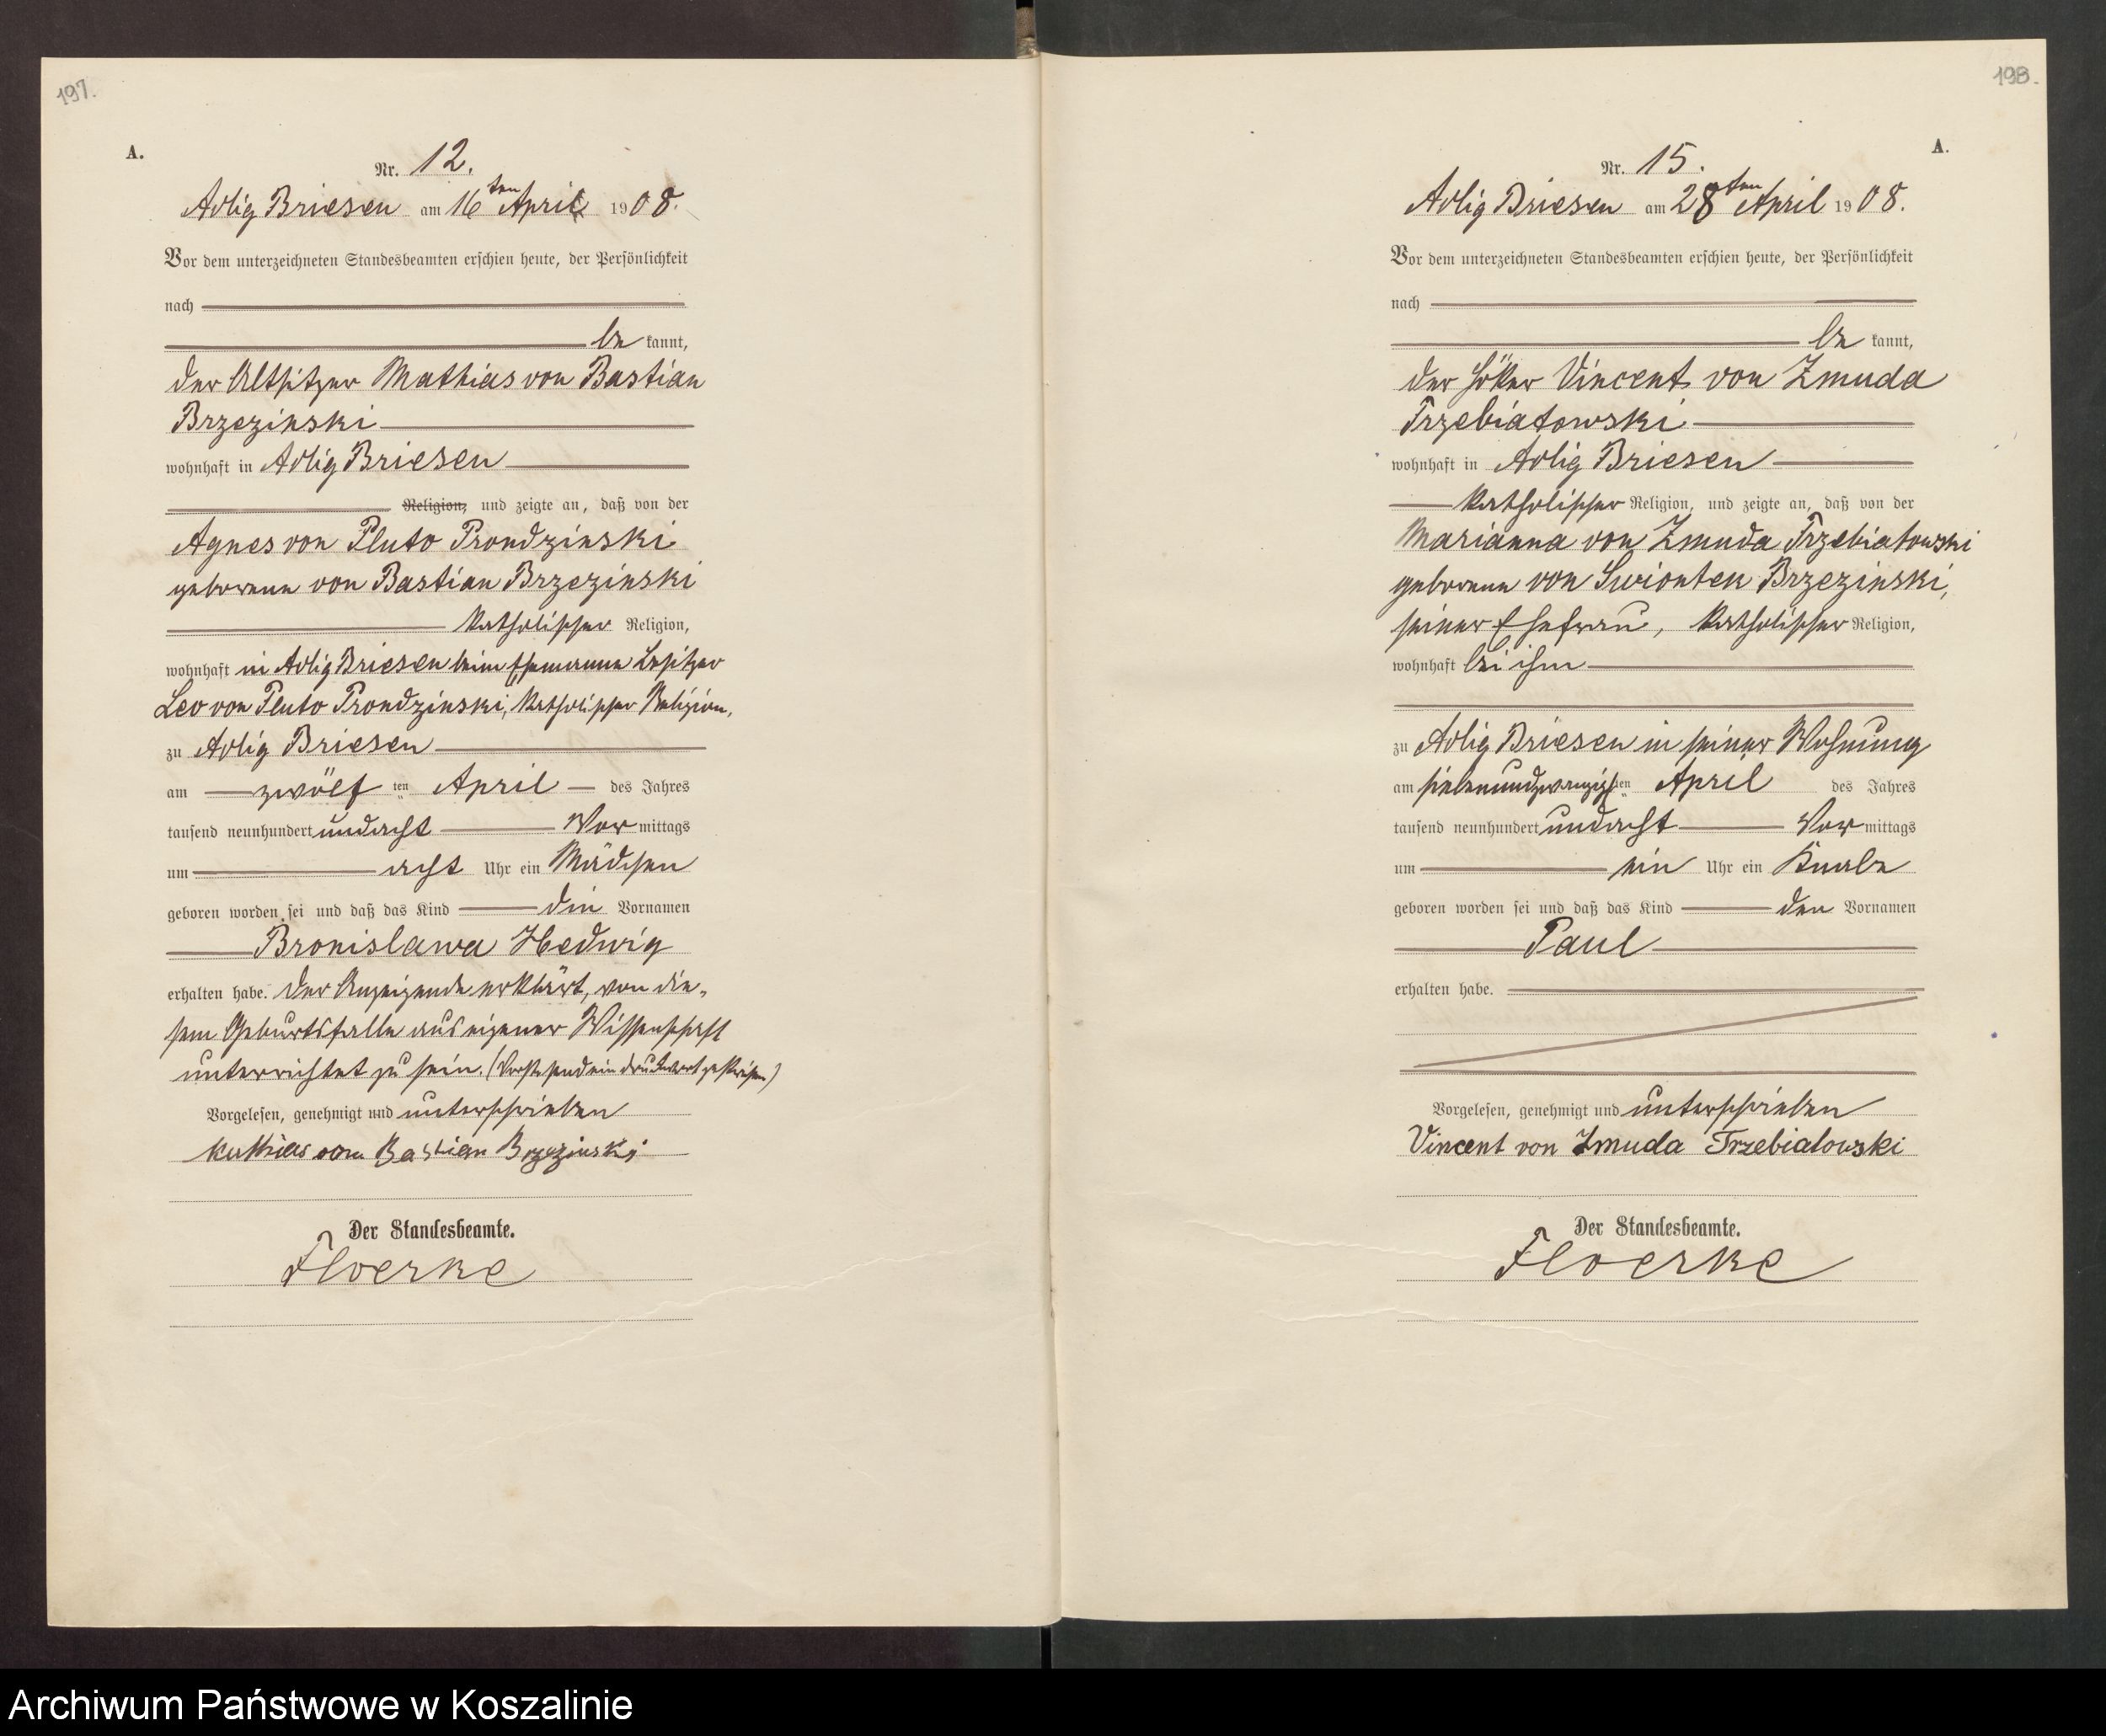 197.
A.
Nr. 12.
Adlig Briesen am 16ten April 1908.
Vor dem unterzeichneten Standesbeamten erschien heute, der Persönlichkeit
nach
be kannt,
der Altsitzer Mathias von Bastian
Brzezinski
wohnhaft in Adlig Briesen
Religion, und zeigte an, daß von der
Agnes von Pluto Prondzinski
geborene von Bastian Brzezinski
katholischer Religion,
wohnhaft in Adlig Briesen beim Ehemanne Besitzer
Leo von Pluto Prondzinski, katholischer Religion,
zu Adlig Briesen
am zwölf ten April des Jahres
tausend neunhundert undacht Vor mittags
um acht Uhr ein Mädchen
geboren worden sei und daß das Kind die Vornamen
Bronislawa Hedwig
erhalten habe. Der Anzeigende erklärt, von die-
sem Geburtsfalle aus eigener Wissenschaft
unterrichtet zu sein. (Vorstehend ein Druckwort gestrichen)
Vorgelesen, genehmigt und unterschrieben
Mathias von Bastian Brzezinski
Der Standesbeamte.
Floerke
198.
A.
Nr. 15.
Adlig Briesen am 28ten April 1908.
Vor dem unterzeichneten Standesbeamten erschien heute, der Persönlichkeit
nach
be kannt,
der Höker Vincent von Zmuda
Trzebiatowski
wohnhaft in Adlig Briesen
katholischer Religion, und zeigte an, daß von der
Marianna von Zmuda Trzebiatowski
geborene von Swiontek Brzezinski,
seiner Ehefrau, katholischer Religion,
wohnhaft bei ihm
zu Adlig Briesen in seiner Wohnung
am siebenundzwanzigsten April des Jahres
tausend neunhundert undacht Vor mittags
um ein Uhr ein Knabe
geboren worden sei und daß das Kind den Vornamen
Paul
erhalten habe.
Vorgelesen, genehmigt und unterschrieben
Vincent von Zmuda Trzebiatowski
Der Standesbeamte.
Floerke
Archiwum Państwowe w Koszalinie